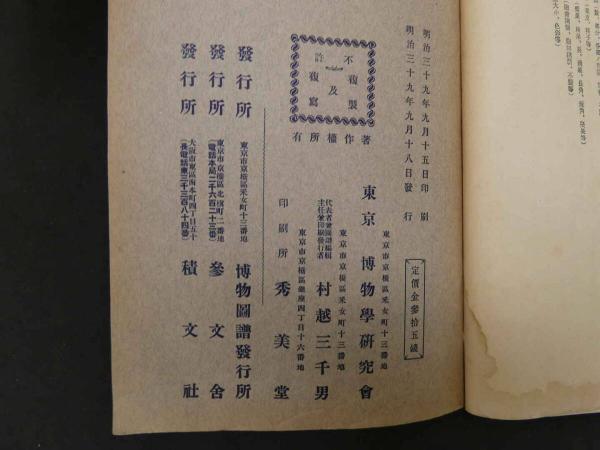 明治三十九年九月十五日印刷
明治三十九年九月十八日發行
不許複製及複寫
著作權所有
定價金參拾五錢
東京市京橋區釆女町十三番地
東京 博物學研究會
東京市京橋區釆女町十三番地
代表者兼圖譜編輯
主任兼印刷發行者
村越三千男
東京市京橋區銀座四丁目十六番地
印刷所 秀美堂
東京市京橋區釆女町十三番地
發行所 博物圖譜發行所
東京市京橋區北槇町二番地
(電話本局二千六百二十三番)
發行所 參文舍
大阪市東區南本町四丁目五十
(長電話東三千三百八十四番)
發行所 積文社